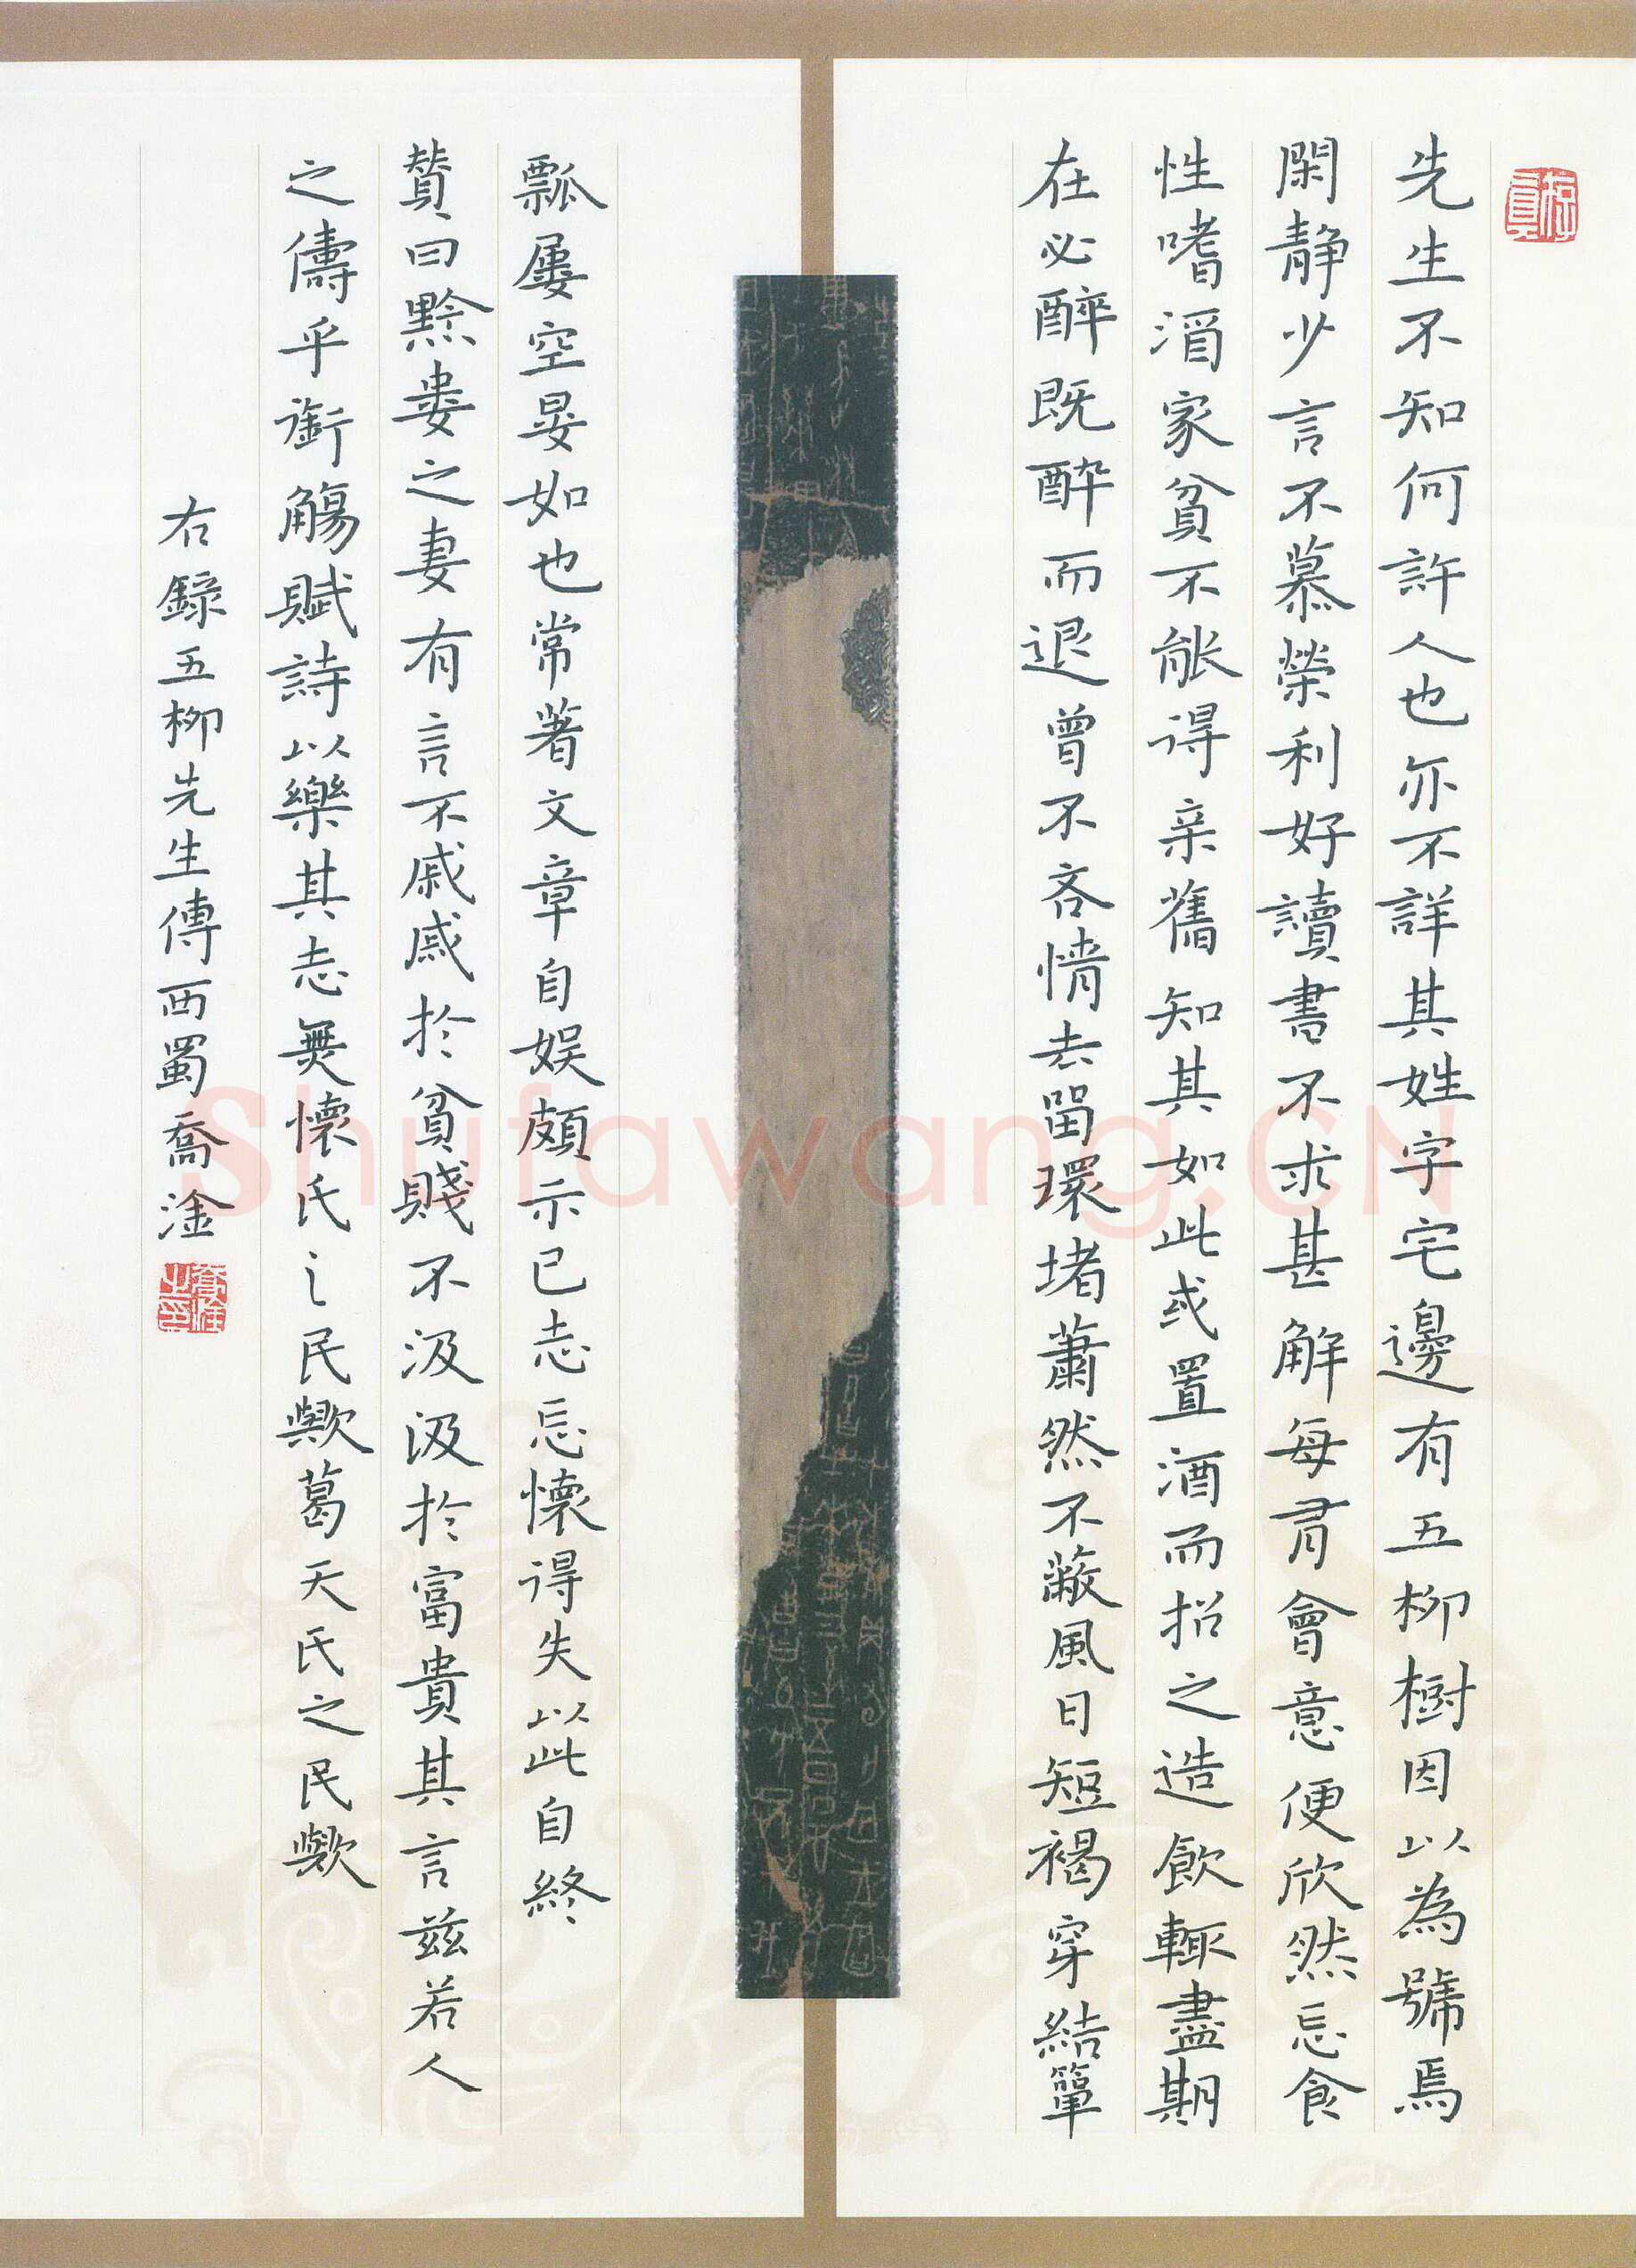 先生不知何許人也亦不詳其姓字宅邊有五柳樹因以為號焉
閑静少言不慕榮利好讀書不求甚解每有會意便欣然忘食
性嗜酒家貧不能得亲舊知其如此或置酒而招之造飲輒盡期
在必醉既醉而退曾不吝情去留環堵蕭然不蔽風日短褐穿結簞
瓢屢空晏如也常著文章自娱頗示己志忘懷得失以此自終
贊曰黔婁之妻有言不戚戚於貧賤不汲汲於富貴其言茲若人
之儔乎銜觴賦詩以樂其志無懷氏之民歟葛天氏之民歟
右錄五柳先生傳西蜀喬淦
Shufawang.CN